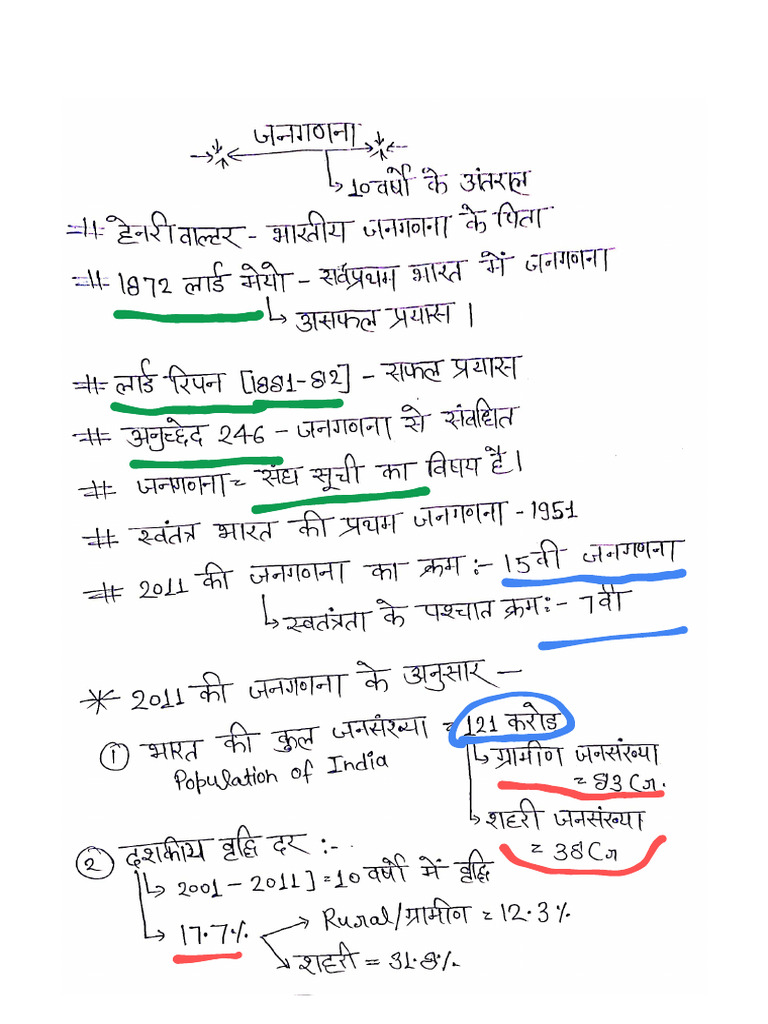 जनगणना
10 वर्षो के अंतराल
# हेनरी वाल्टर - भारतीय जनगणना के पिता
# 1872 लार्ड मेयो - सर्वप्रथम भारत में जनगणना
असफल प्रयास ।
# लार्ड रिपन [1881-82] - सफल प्रयास
# अनुच्छेद 246 - जनगणना से संबधित
# जनगणना = संघ सूची का विषय है।
# स्वतंत्र भारत की प्रथम जनगणना - 1951
# 2011 की जनगणना का क्रम :- 15वी जनगणना
स्वतंत्रता के पश्चात क्रम:- 7वी
* 2011 की जनगणना के अनुसार —
① भारत की कुल जनसंख्या = 121 करोड
Population of India
ग्रामीण जनसंख्या
= 83 Cr.
शहरी जनसंख्या
= 38 Cr
② दशकीय वृद्धि दर :-
2001 - 2011] = 10 वर्षो में वृद्धि
17.7%
Rural/ग्रामीण = 12.3%
शहरी = 31.8%